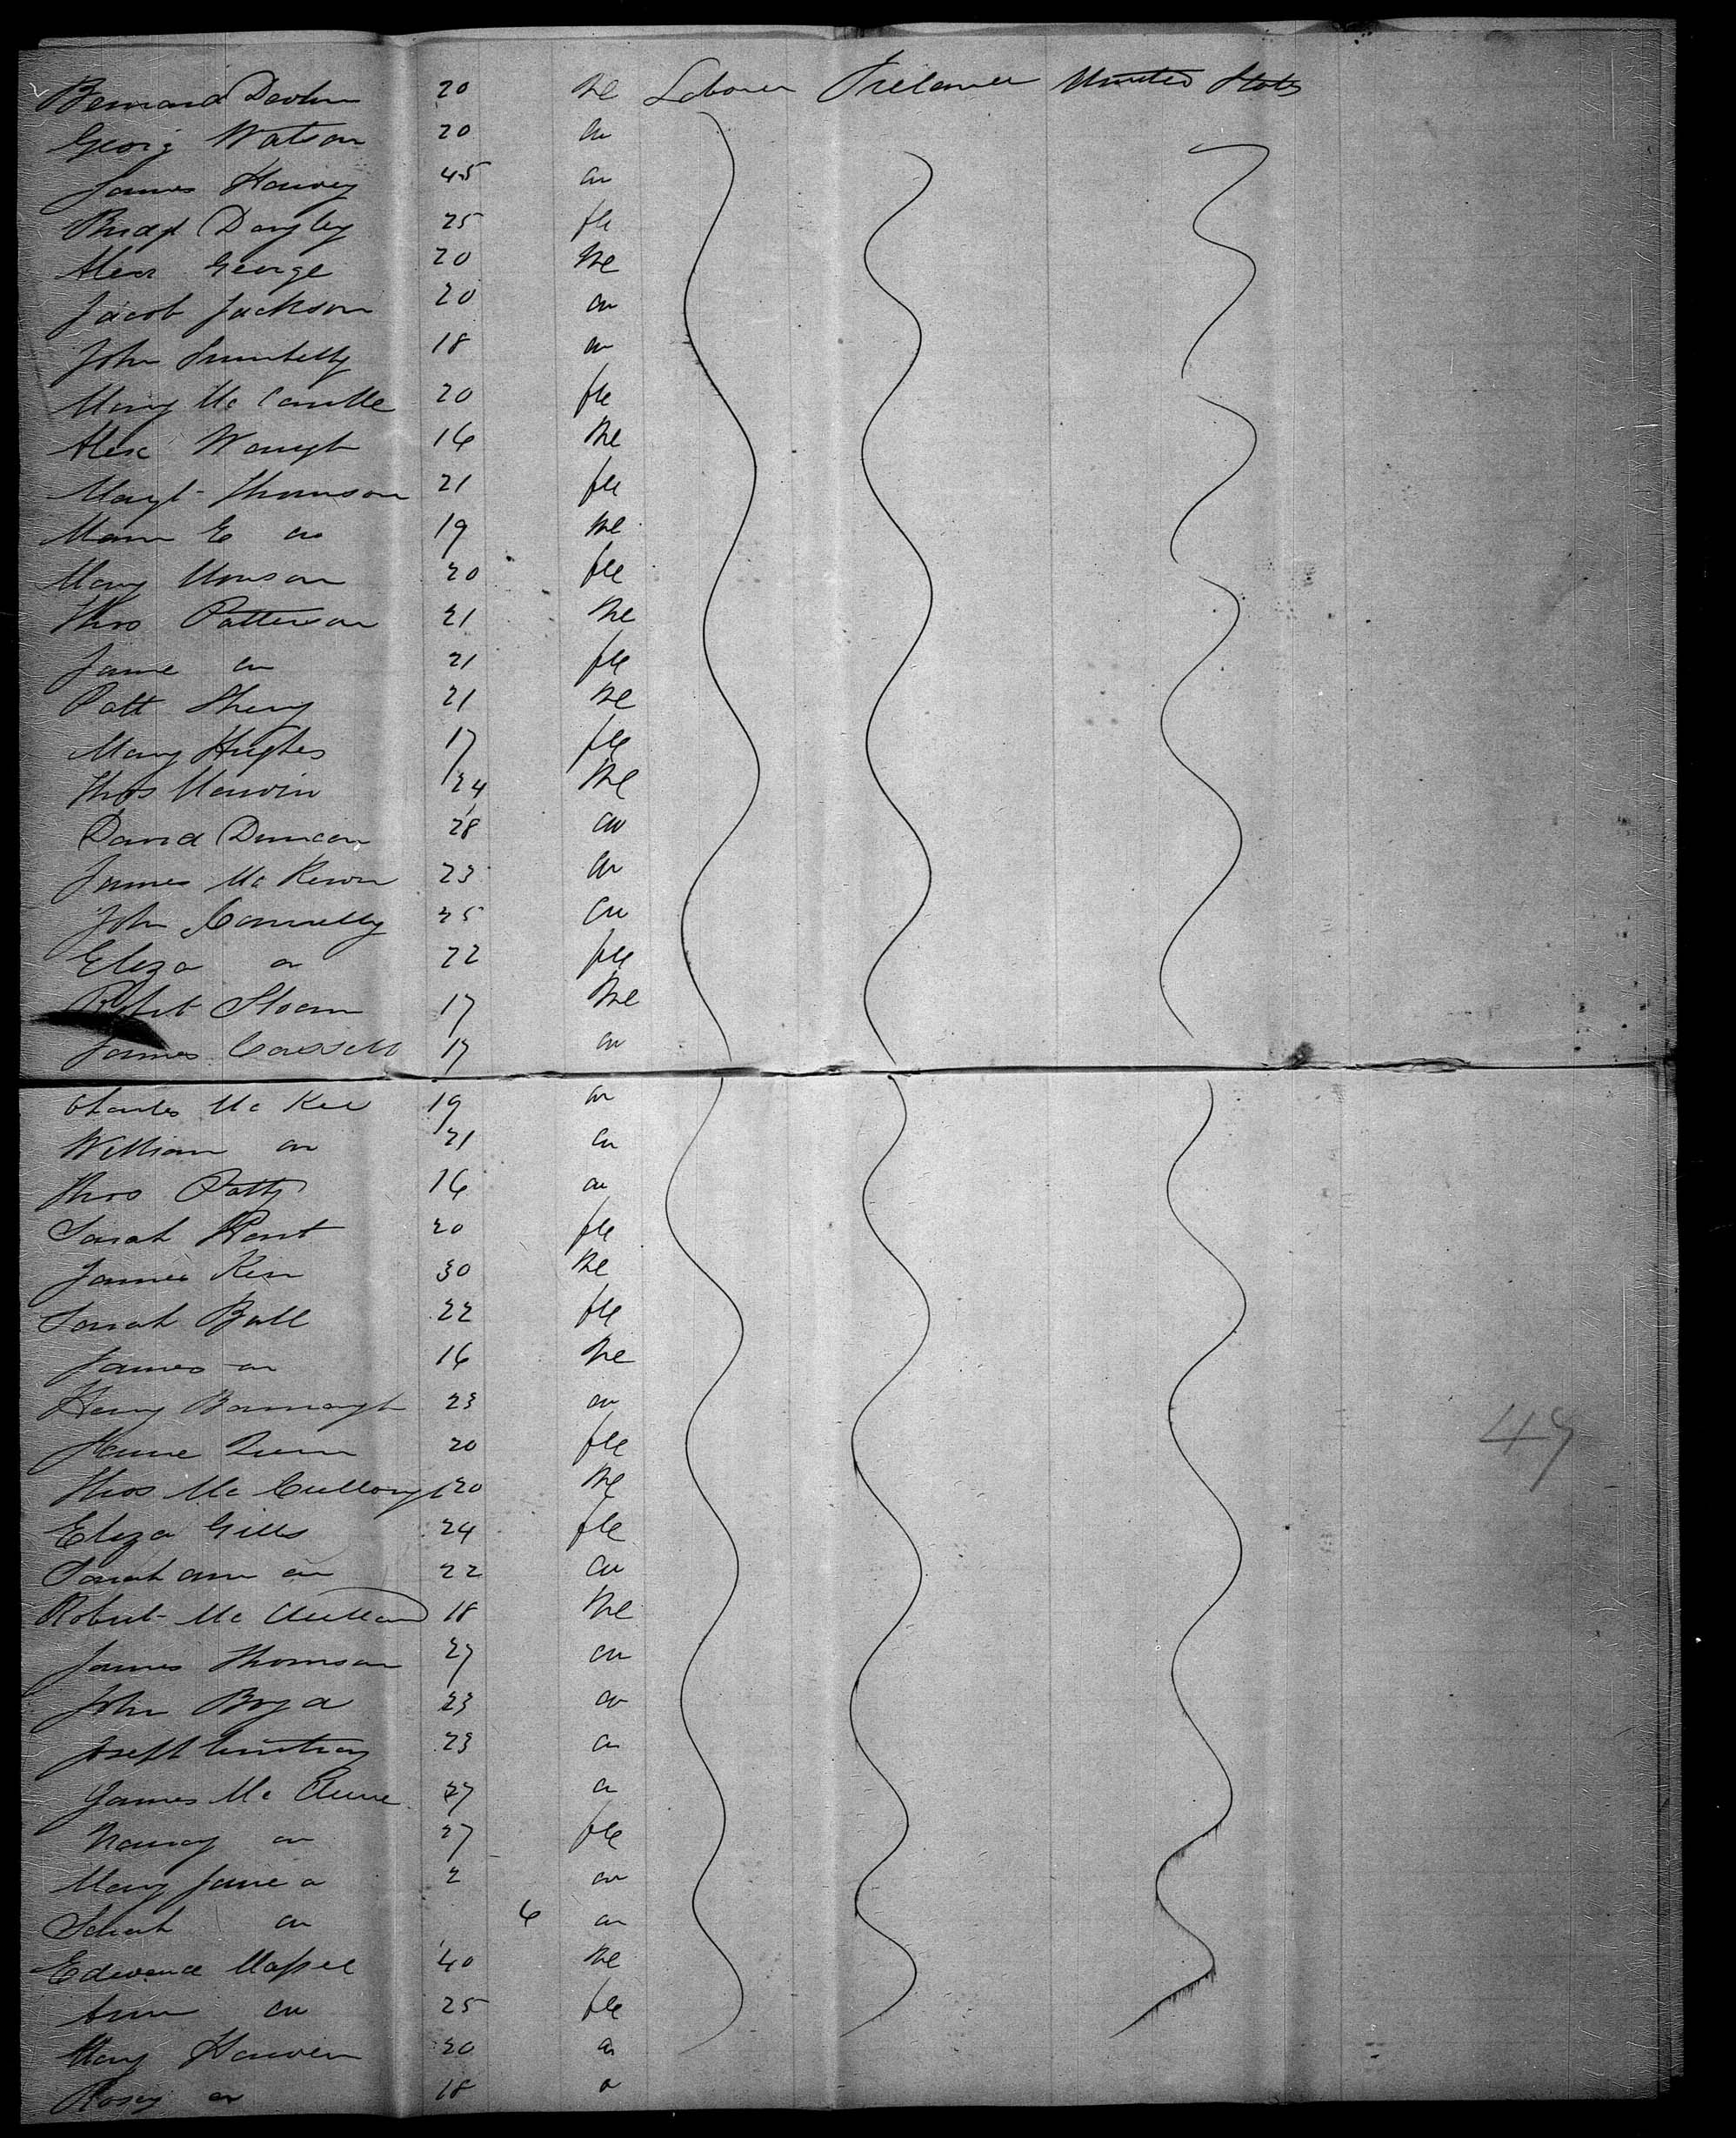 Bernard Devlin 20 Me Laborer Ireland United States
Georg Watson 20 do
James Harvey 45 do
Bridgt 25 fle
Alexr George 20 Me
Jacob Jackson 20 do
John 18 do
Mary Mc 20 fle
Alex Waugh 16 Me
Margt Thomson 21 fle
E do 19 Me
Mary 20 fle
Thos Patterson 21 Me
Jane do 21 fle
Patt 21 Me
Mary Hughes 17 fle
Thos 24 Me
David Duncan 28 do
James Mc Keown 23 do
John Connelly 25 do
Eliza do 22 fle
Robt Sloan 17 Me
James 17 do
Charles Mc Kee 19 do
William do 21 do
Thos Patty 16 do
Sarah 20 fle
James Kerr 30 Me
Sarah Ball 22 fle
James do 16 Me
Henry 23 do
Jane Quinn 20 fle
Thos Mc Cullough 20 Me
Eliza Gills 24 fle
Sarah ann do 22 do
Robert Mc 18 Me
James Thomson 27 do
John Boyd 23 do
Joseph 23 do
James Mc Clure 27 do
Nancy do 27 fle
Mary Jane do 2 do
Sarah do 6 do
Edward 40 Me
Ann do 25 fle
Mary 20 do
Rosey do 18 do